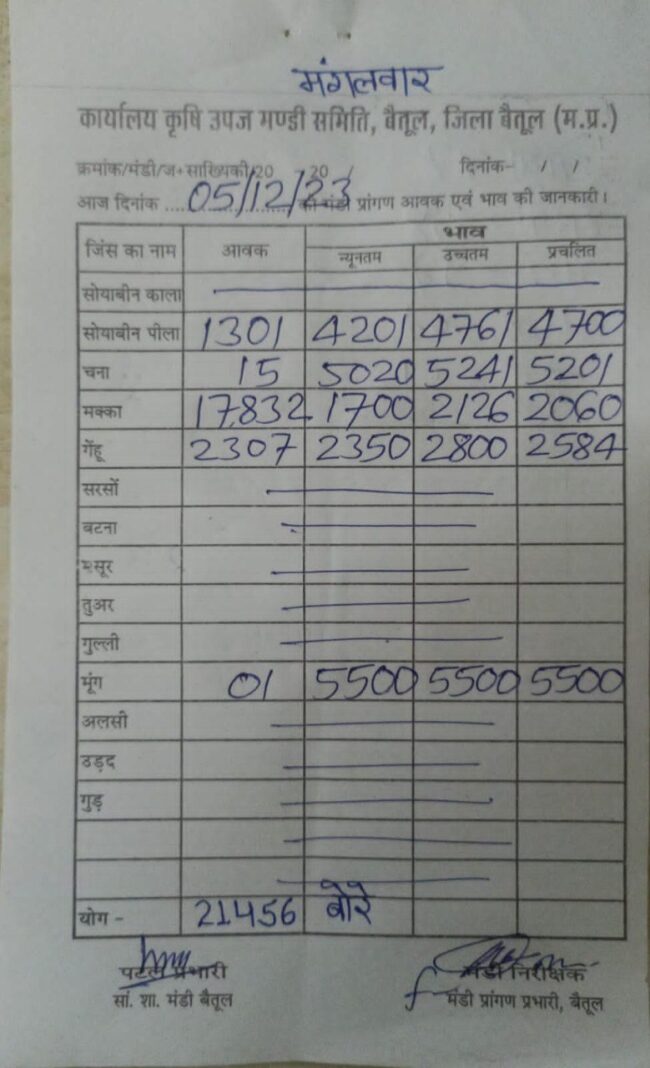 मंगलवार
कार्यालय कृषि उपज मण्डी समिति, बैतूल, जिला बैतूल (म.प्र.)
क्रमांक/मंडी/ज+साख्यिकी/20 20 / दिनांक- / /
आज दिनांक .... 05/12/23 को मंडी प्रांगण आवक एवं भाव की जानकारी।
जिंस का नाम आवक भाव
न्यूनतम उच्चतम प्रचलित
सोयाबीन काला
सोयाबीन पीला 1301 4201 4761 4700
चना 15 5020 5241 5201
मक्का 17,832 1700 2126 2060
गेंहू 2307 2350 2800 2584
सरसों
बटना
मसूर
तुअर
गुल्ली
मूंग 01 5500 5500 5500
अलसी
उड़द
गुड़
योग - 21456 बोरे
पटल प्रभारी मंडी निरीक्षक
सां. शा. मंडी बैतूल मंडी प्रांगण प्रभारी, बैतूल